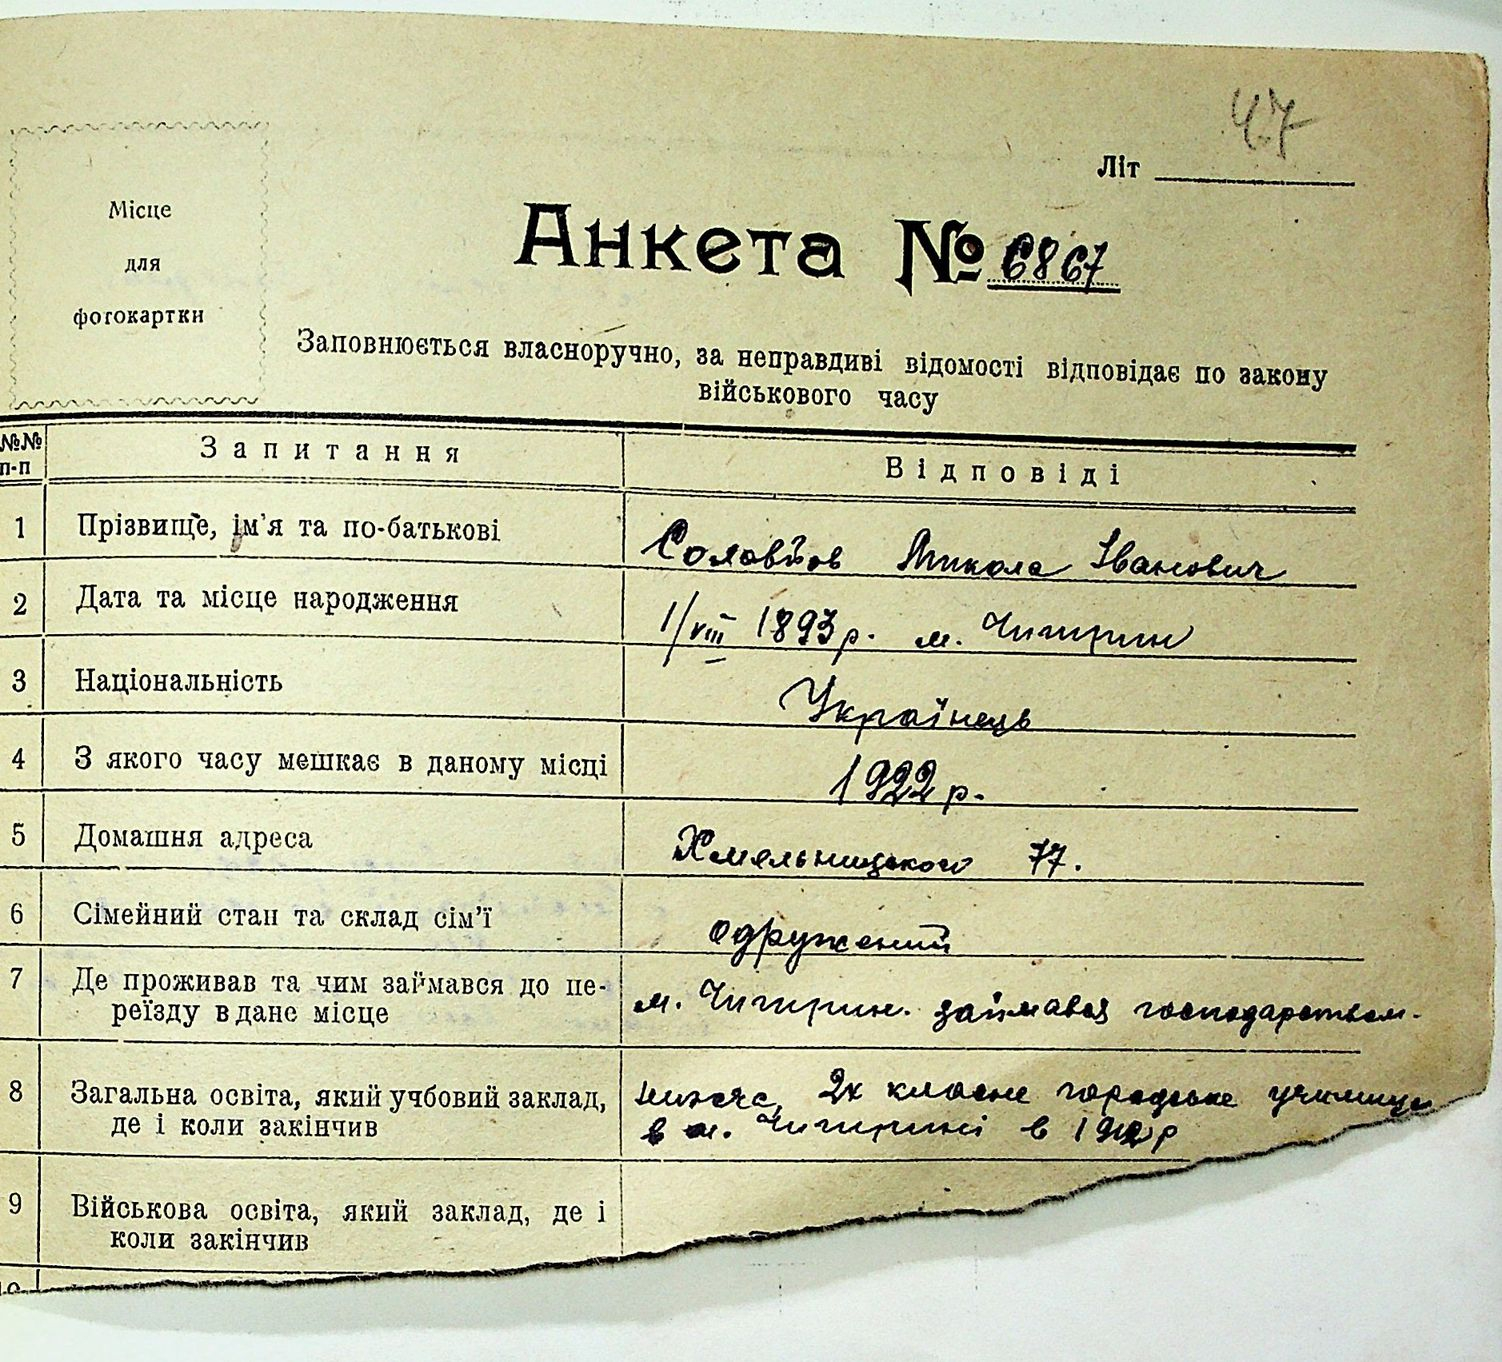 47
Літ
Місце
для
фотокартки
Анкета № 6867
Заповнюється власноручно, за неправдиві відомості відповідає по закону
військового часу
№№ п-п Запитання Відповіді
1 Прізвище, ім'я та по-батькові Соловйов Микола Іванович
2 Дата та місце народження 1/VIII 1893 р. м. Чигирин
3 Національність Українець
4 З якого часу мешкає в даному місці 1922 р.
5 Домашня адреса Хмельницького 77.
6 Сімейний стан та склад сім'ї одружений
7 Де проживав та чим займався до пе-
реїзду в дане місце м. Чигирин. займався господарством.
8 Загальна освіта, який учбовий заклад, 2х класне городське училище
де і коли закінчив в м. Чигирині в р
9 Військова освіта, який заклад, де і
коли закінчив